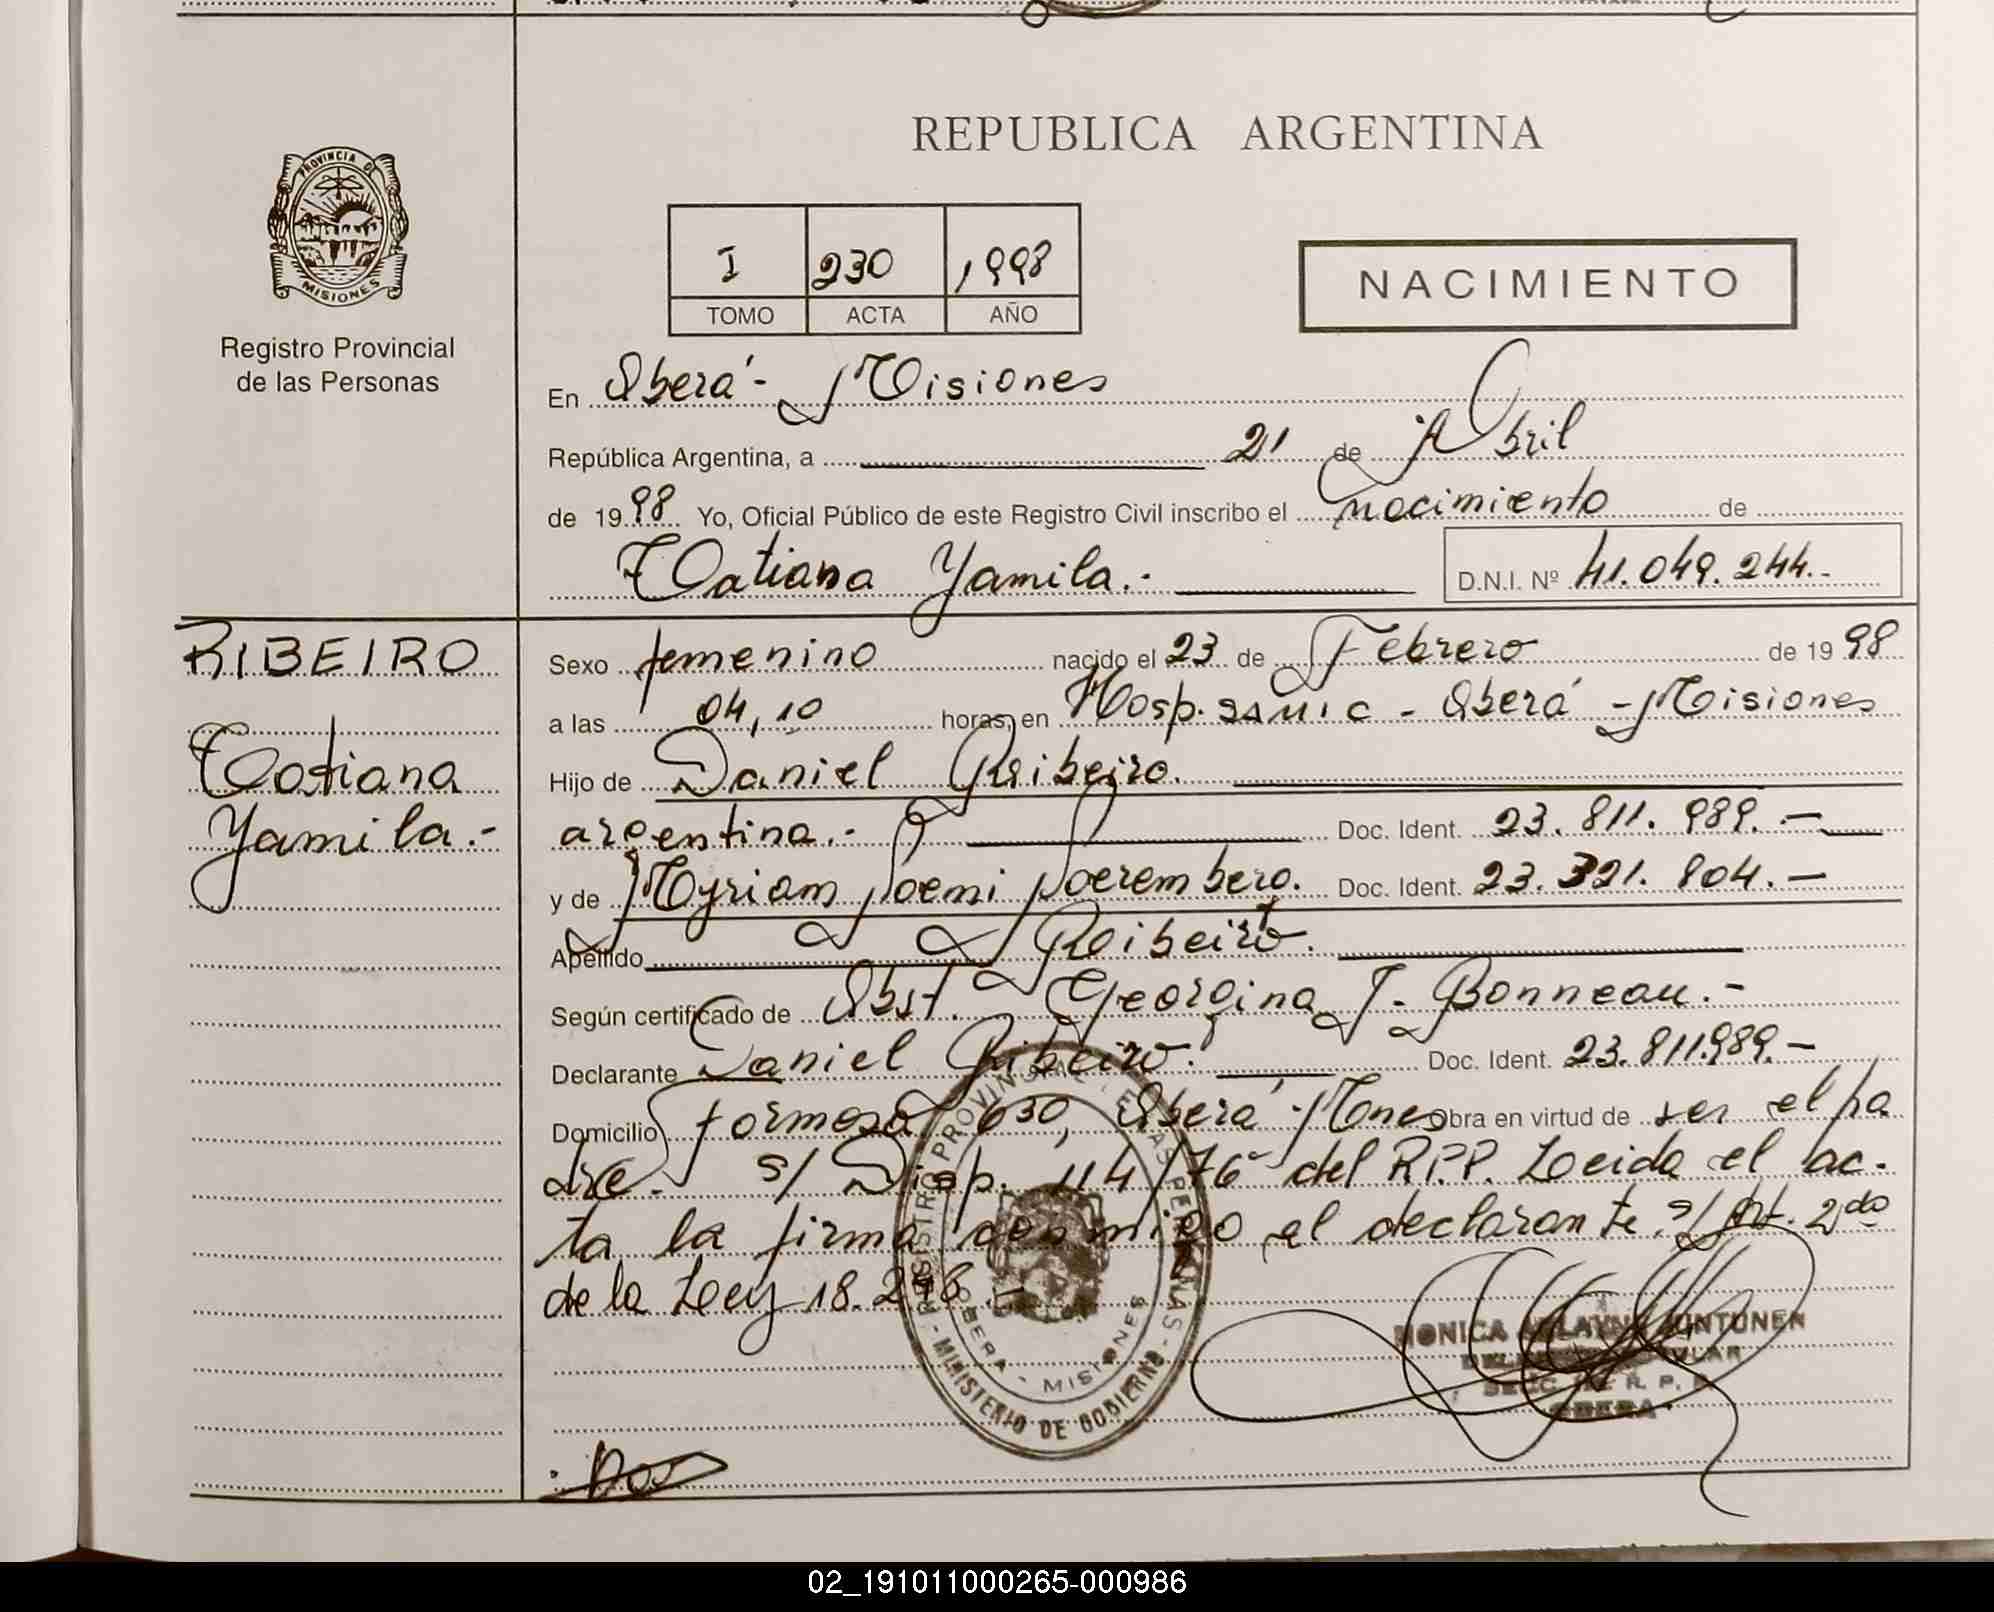 REPUBLICA ARGENTINA
PROVINCIA DE
MISIONES
Registro Provincial
de las Personas
I 230 1998
TOMO ACTA AÑO
NACIMIENTO
En Oberá - Misiones
República Argentina, a 21 de Abril
de 1998 Yo, Oficial Público de este Registro Civil inscribo el nacimiento de
Tatiana Yamila.- D.N.I. Nº 41.049.244.-
RIBEIRO
Tatiana
Yamila.-
Sexo femenino nacido el 23 de Febrero de 1998
a las 04,10 horas, en Hosp. SAMIC - Oberá - Misiones
Hijo de Daniel Ribeiro.
argentina.- Doc. Ident. 23.811.989.-
y de Myriam Noemi Noeremberg. Doc. Ident. 23.321.804.-
Apellido Ribeiro.
Según certificado de Obst. Georgina J. Bonneau.-
Declarante Daniel Ribeiro. Doc. Ident. 23.811.989.-
Domicilio Formosa 630, Oberá - Mnes Obra en virtud de ser el pa
dre. s/ Disp. 114/76 del R.P.P. Leida el ac-
ta la firma conmigo el declarante. s/ Art. 2do
de la Ley 18.248.-
REGISTRO PROVINCIAL DE LAS PERSONAS - MINISTERIO DE GOBIERNO -
OBERA - MISIONES
MONICA
OBERA
02_191011000265-000986